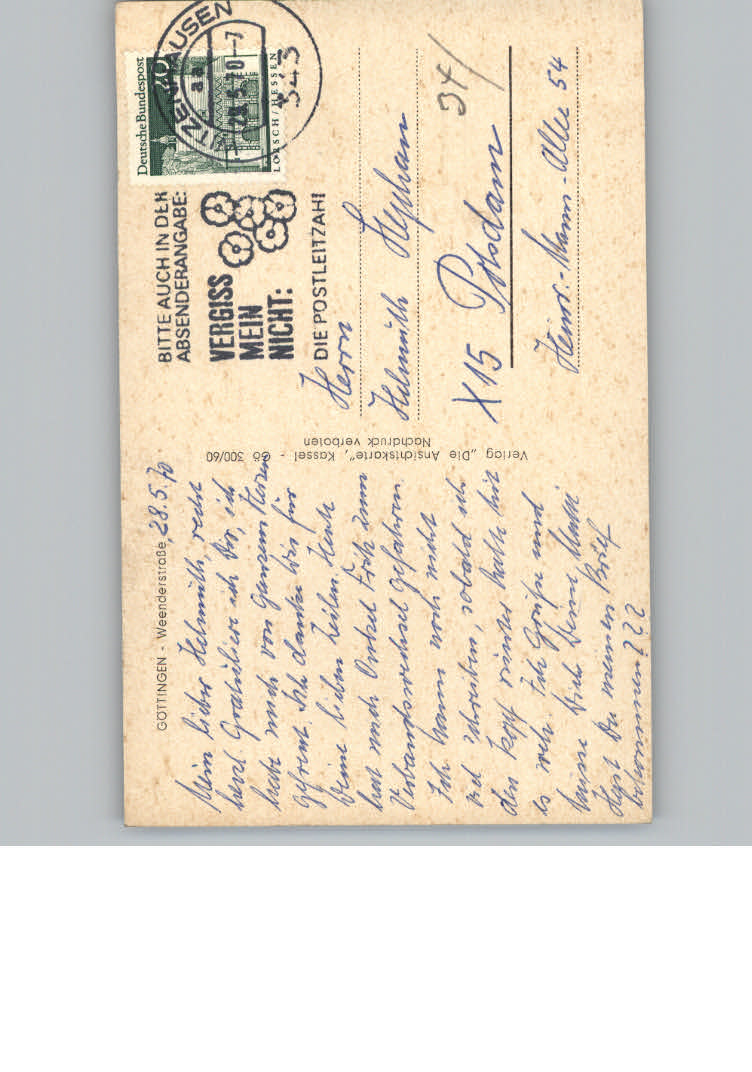 GÖTTINGEN - Weenderstraße, 28.5.70
Mein lieber Helmuth, recht
herzl. Gratuliere ich Dir, ich
habe mich von ganzem Herzen
gefreut. Ich danke Dir für
Deine lieben Zeilen. Heute
hat mich Onkel Fritz zum
Verbandswechsel gefahren.
Ich kann noch nicht
viel schreiben, sobald ich
den Kopf runter halte tut
es weh. Ich Grüße und
küsse Dich Deine Mutti
Hast Du meinen Brief
bekommen???
Verlag „Die Ansichtskarte", Kassel - Gö 300/60
Nachdruck verboten
Deutsche Bundespost
20
LORSCH/HESSEN
28.5.70-7
343
BITTE AUCH IN DER
ABSENDERANGABE:
VERGISS
MEIN
NICHT:
DIE POSTLEITZAHL
34/
Herrn
Helmuth Stephan
X15 Potsdam
Heinr.-Mann-Allee 54